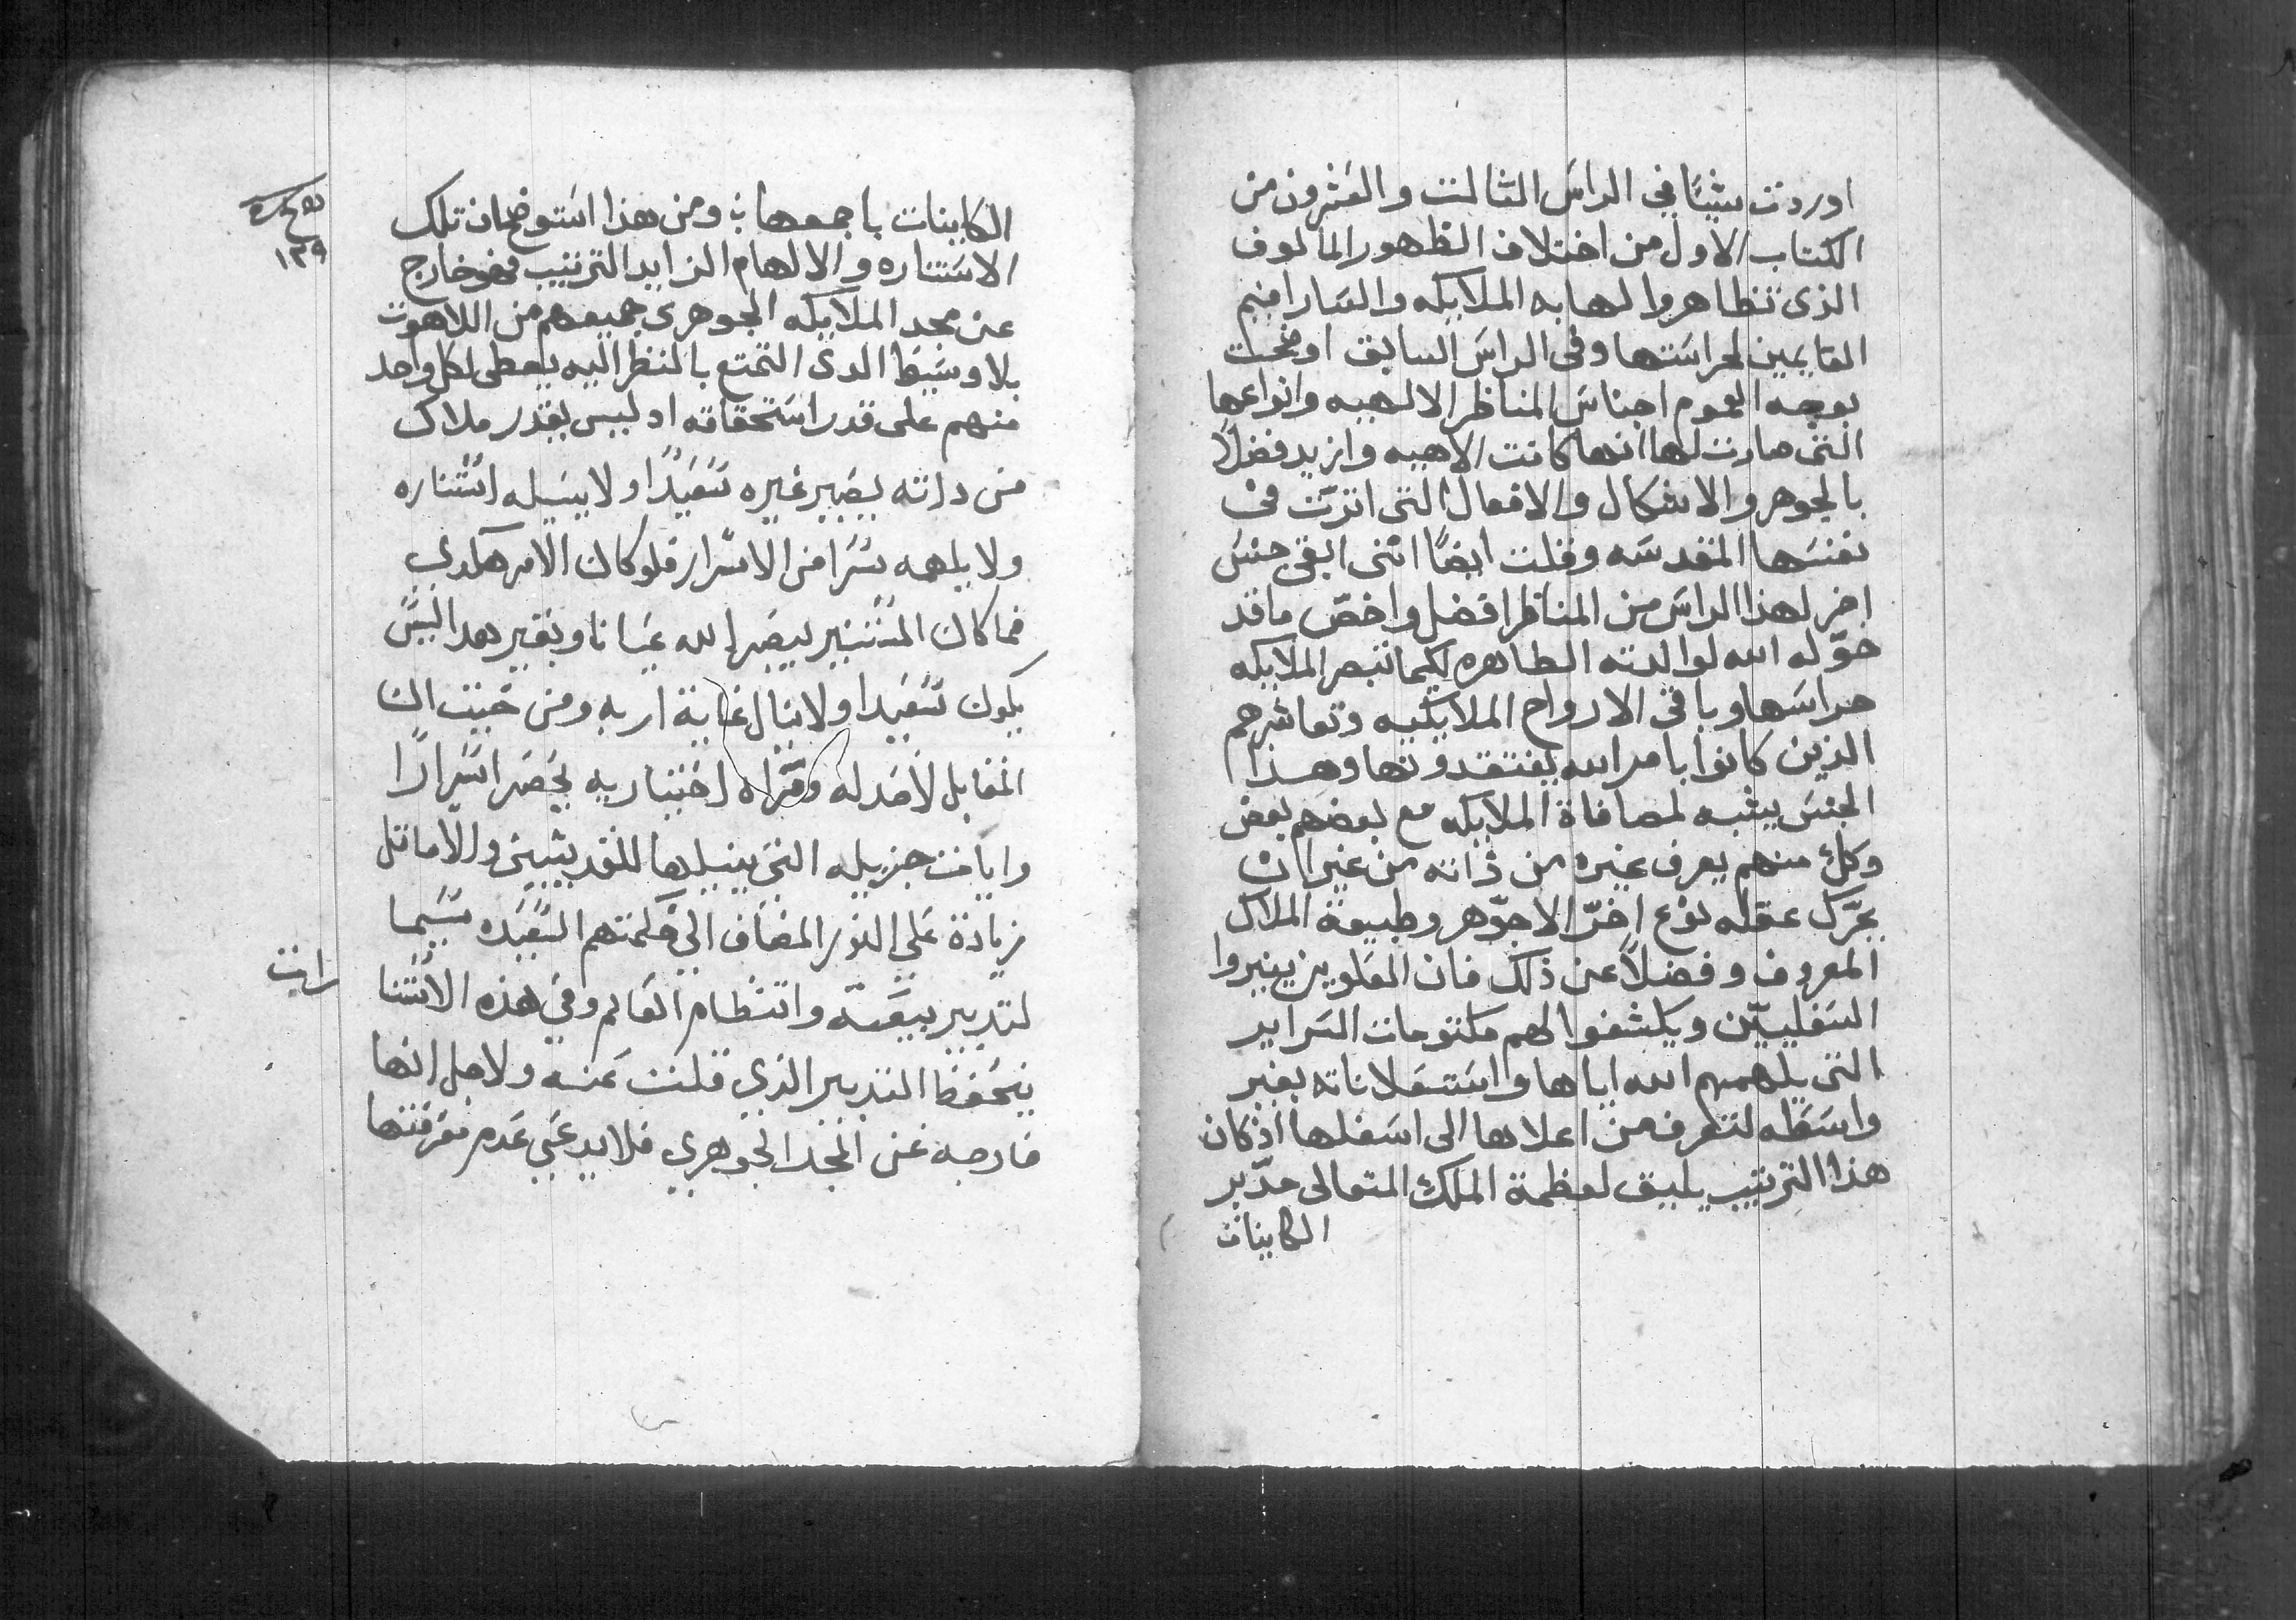 اوردت شيئا في الراس الثالت والعشرون من
الكتاب الاول من اختلاف الظهور المالوف
الذى تظاهروا لها به الملايكه والسارافيم
القايمين لحراستها وفى الراس السابق اوضحت
بوجه العموم اجناس المناظر الالهيه وانواعها
التى صارت لها انها كانت الاهيه وازيد فضلاً
بالجوهر والاشكال والافعال التى اثرت فى
نفسها المقدسه وقلت ايضًا اننى ابقى جنس
اخر لهذا الراس من المناظر افضل واخصّ ما قد
خوّله الله لوالدته الطاهره لكيما تبصر الملايكه
حراسها وباقى الارواح الملايكيه وتعاشرهم
الذين كانوا بامر الله يفتقدونها وهذا
الجنس يشبه لمصافاة الملايكه مع بعضهم بعض
وكل منهم يعرف غيره من ذاته من غير ان
يحرّك عقله نوع اخرّ الا جوّهر وطبيعة الملاك
المعروف وفضلاً عن ذلك فان العلويين ينيروا
السفليين ويكشفوا لهم مكتومات السراير
التى يلهمهم الله اياها واستعلاناته بغير
واسطه لتعرف من اعلاها الى اسفلها اذ كان
هذا الترتيب يليق لعظمة الملك المتعالى مدّبر
الكاينات
الكاينات باجمعها ومن هذا استوضح ان تلك
الاستناره والالهام الزايد الترتيب فهو خارج
عن مجد الملايكه الجوهرى جميعهم من اللاهوت
بلا وسيط الدى التمتع بالنظر اليه يعطى لكل واحد
منهم على قدر استحقاقه اد ليس يقدر ملاك
من داته يصير غيره سعيدًا ولا ينيله استناره
ولا يلهمه سرا من الاسرار فلو كان الامر هكدي
فما كان المستنير يبصر الله عيانا وبغير هدا ليس
يكون سعيدا ولا ينال غاية اربه ومن حيت ان
المقابل لاصدله ومراه اختياريه يحصر اسرارًا
وايات جزيله التي ينيلها للقديسين والاماتل
زيادة علي النور المضاف الي حكمتهم السعيده سيما
لتدبير بيعته وانتظام العالم وفي هذه الاستنا
يتحفظ التدبير الذي قلت عنه ولاجل انها
خارجه عن المجد الجوهري فلا يدعي عدم معرفتها
رايت
١٣٩